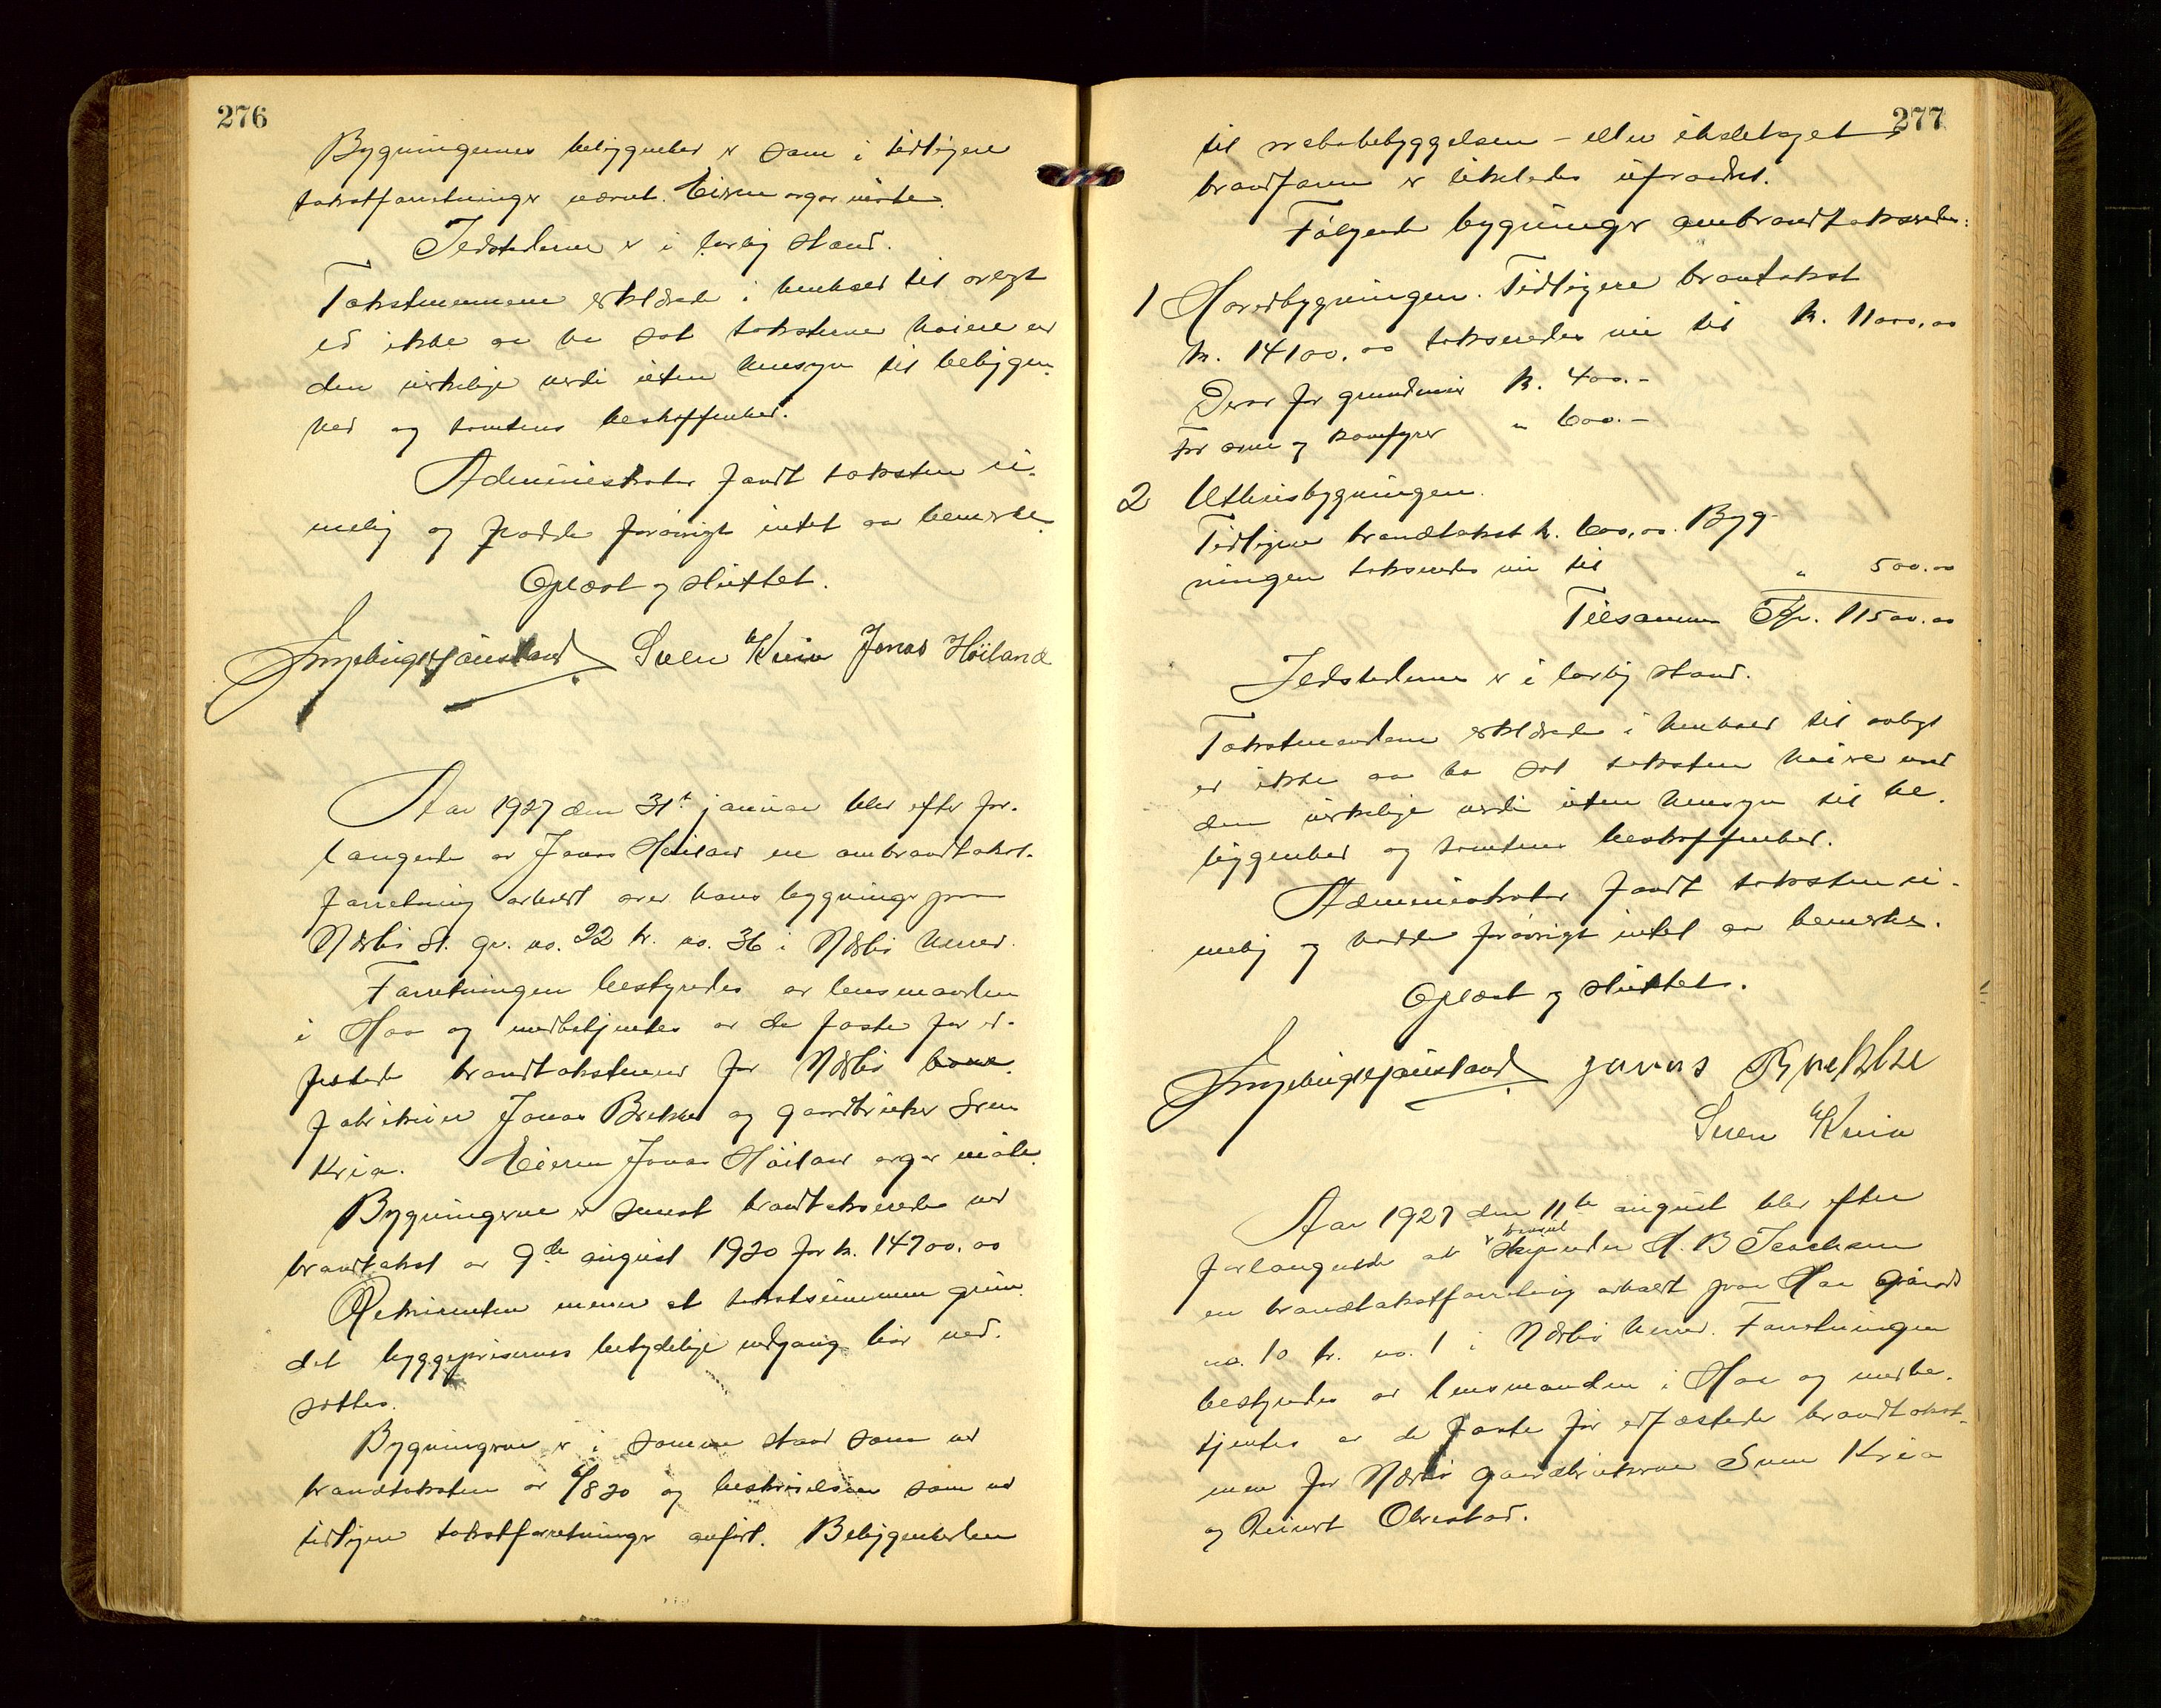 276
Bygningernes beliggenhet er som i tidligere
takstforretninger nævnt. Eieren avgav møte.
Ildstederne er i lovlig stand.
Takstmennene erklærede i henhold til avlagt
ed ikke at ha sat taksterne høiere end
den virkelige værdi uten hensyn til beliggen-
hed og tomtens beskaffenhed.
Administrator fandt taksten ri-
melig og hadde forøvrigt intet at bemerke.
Oplæst og sluttet.
Sven Kvia Jonas Höiland
Aar 1927 den 31te januar blev efter for-
langende av Jonas Høiland en ombrandtakst-
forretning avholdt over hans bygninger paa
Nærbø St. gr. no. 22 br. no. 36 i Nærbø herred.
Forretningen bestyredes av lensmanden
i Haa og medbetjentes av de faste for ed-
festede brandtakstmenn for Nærbø
fabrikeier Jonas Brekke og gaardbruker Sven
Kvia. Eieren Jonas Høiland avgav møte.
Bygningerne er senest brandtakserede ved
brandtakst av 9de august 1920 for kr. 14700.00
Rekvirenten mener at takstsummen grun-
det byggeprisernes betydelige nedgang bør ned-
sættes.
Bygningerne er i samme stand som ved
brandtaksten av 9/8 20 og beskrivelsen som ved
tidligere takstforretninger anført. Beliggenheden
277
til nabobebyggelsen - eller ikkeleget
brandfarne er likeledes uforandret.
Følgende bygninger ombrandtakseredes:
1 Hovedbygningen. Tidligere brantakst
kr. 14100.00 takseredes nu til k. 11000,00
Derav for grundmur k. 400.-
For ovne og komfyrer " 600.-
2 Uthusbygningen.
Tidligere brandtakst k. 600,00. Byg-
ningen takseredes nu til " 500.00
Tilsammen Kr. 11500.00
Ildstederne er i lovlig stand.
Takstmændene erklærede i henhold til avlagt
ed ikke at ha sat taksten høiere end
den virkelige værdi uten hensyn til be-
liggenhed og tomtens beskaffenhed.
Administrator fandt taksten ri-
melig og hadde forøvrigt intet at bemerke.
Oplæst og sluttet.
Jonas Brekke
Sven Kvia
Aar 1927 den 11te august blev efter
konsul
forlangende av H. B.
en brandtakstforretning avholdt paa Haa gaards
no. 10 br. no. 1 i Nærbø herred. Forretningen
bestyredes av lensmanden i Haa og medbe-
tjentes av de faste for edfæstede brandtakst-
menn for Nærbø gaardbrukerne Sven Kvia
og Reinert Obrestad.